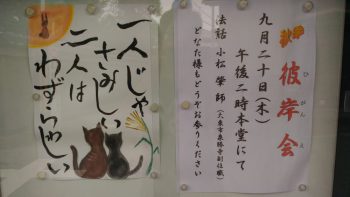 秋季 彼岸会
ひがんえ
九月二十日(木)
午後二時本堂にて
法話 小松 肇 師
どなた様もどうぞお参りください
一人じゃ
さみしい
二人は
わずらわしい